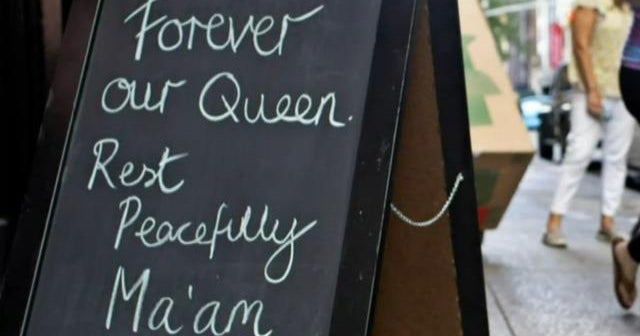 Forever
our Queen.
Rest
Peacefully
Ma'am